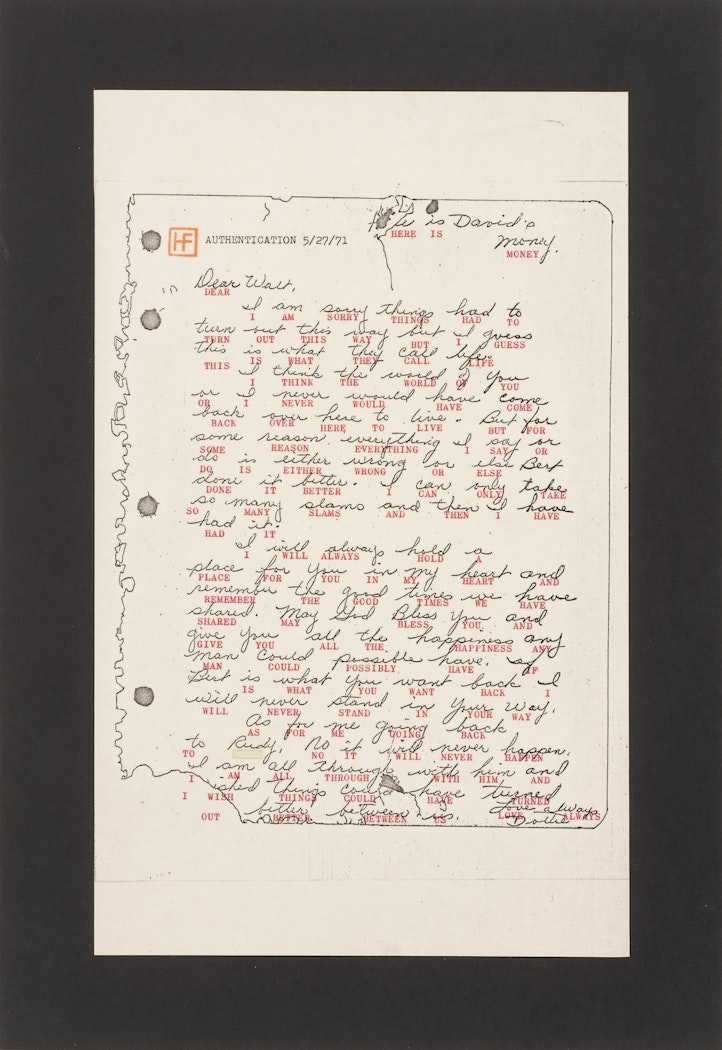 Here is David's
HF AUTHENTICATION 5/27/71
HERE IS
Money.
MONEY
in
Dear Walt,
DEAR
I am sorry things had to
I AM SORRY THINGS HAD TO
turn out this way but I guess
TURN OUT THIS WAY BUT I GUESS
this is what they call life.
THIS IS WHAT THEY CALL LIFE
I think the world of you
I THINK THE WORLD OF YOU
or I never would have come
OR I NEVER WOULD HAVE COME
back over here to live. But for
BACK OVER HERE TO LIVE BUT FOR
some reason everything I say or
SOME REASON EVERYTHING I SAY OR
do is either wrong or else Bert
DO IS EITHER WRONG OR ELSE
done it better. I can only take
DONE IT BETTER I CAN ONLY TAKE
so many slams and then I have
SO MANY SLAMS AND THEN I HAVE
had it.
HAD IT
I will always hold a
I WILL ALWAYS HOLD A
place for you in my heart and
PLACE FOR YOU IN MY HEART AND
remember the good times we have
REMEMBER THE GOOD TIMES WE HAVE
shared. May God Bless You and
SHARED MAY BLESS YOU AND
give You all the happiness any
GIVE YOU ALL THE HAPPINESS ANY
man could possible have. If
MAN COULD POSSIBLY HAVE IF
Bert is what You want back I
IS WHAT YOU WANT BACK I
will never stand in Your way.
WILL NEVER STAND IN YOUR WAY
As for me going back
AS FOR ME GOING BACK
to Rudy, No it will never happen.
TO NO IT WILL NEVER HAPPEN
I am all through with him and
I AM ALL THROUGH WITH HIM AND
I wished things could have turned
I WISH THINGS COULD HAVE TURNED
out better between us. Love always
OUT BETTER BETWEEN US LOVE ALWAYS
Dottie